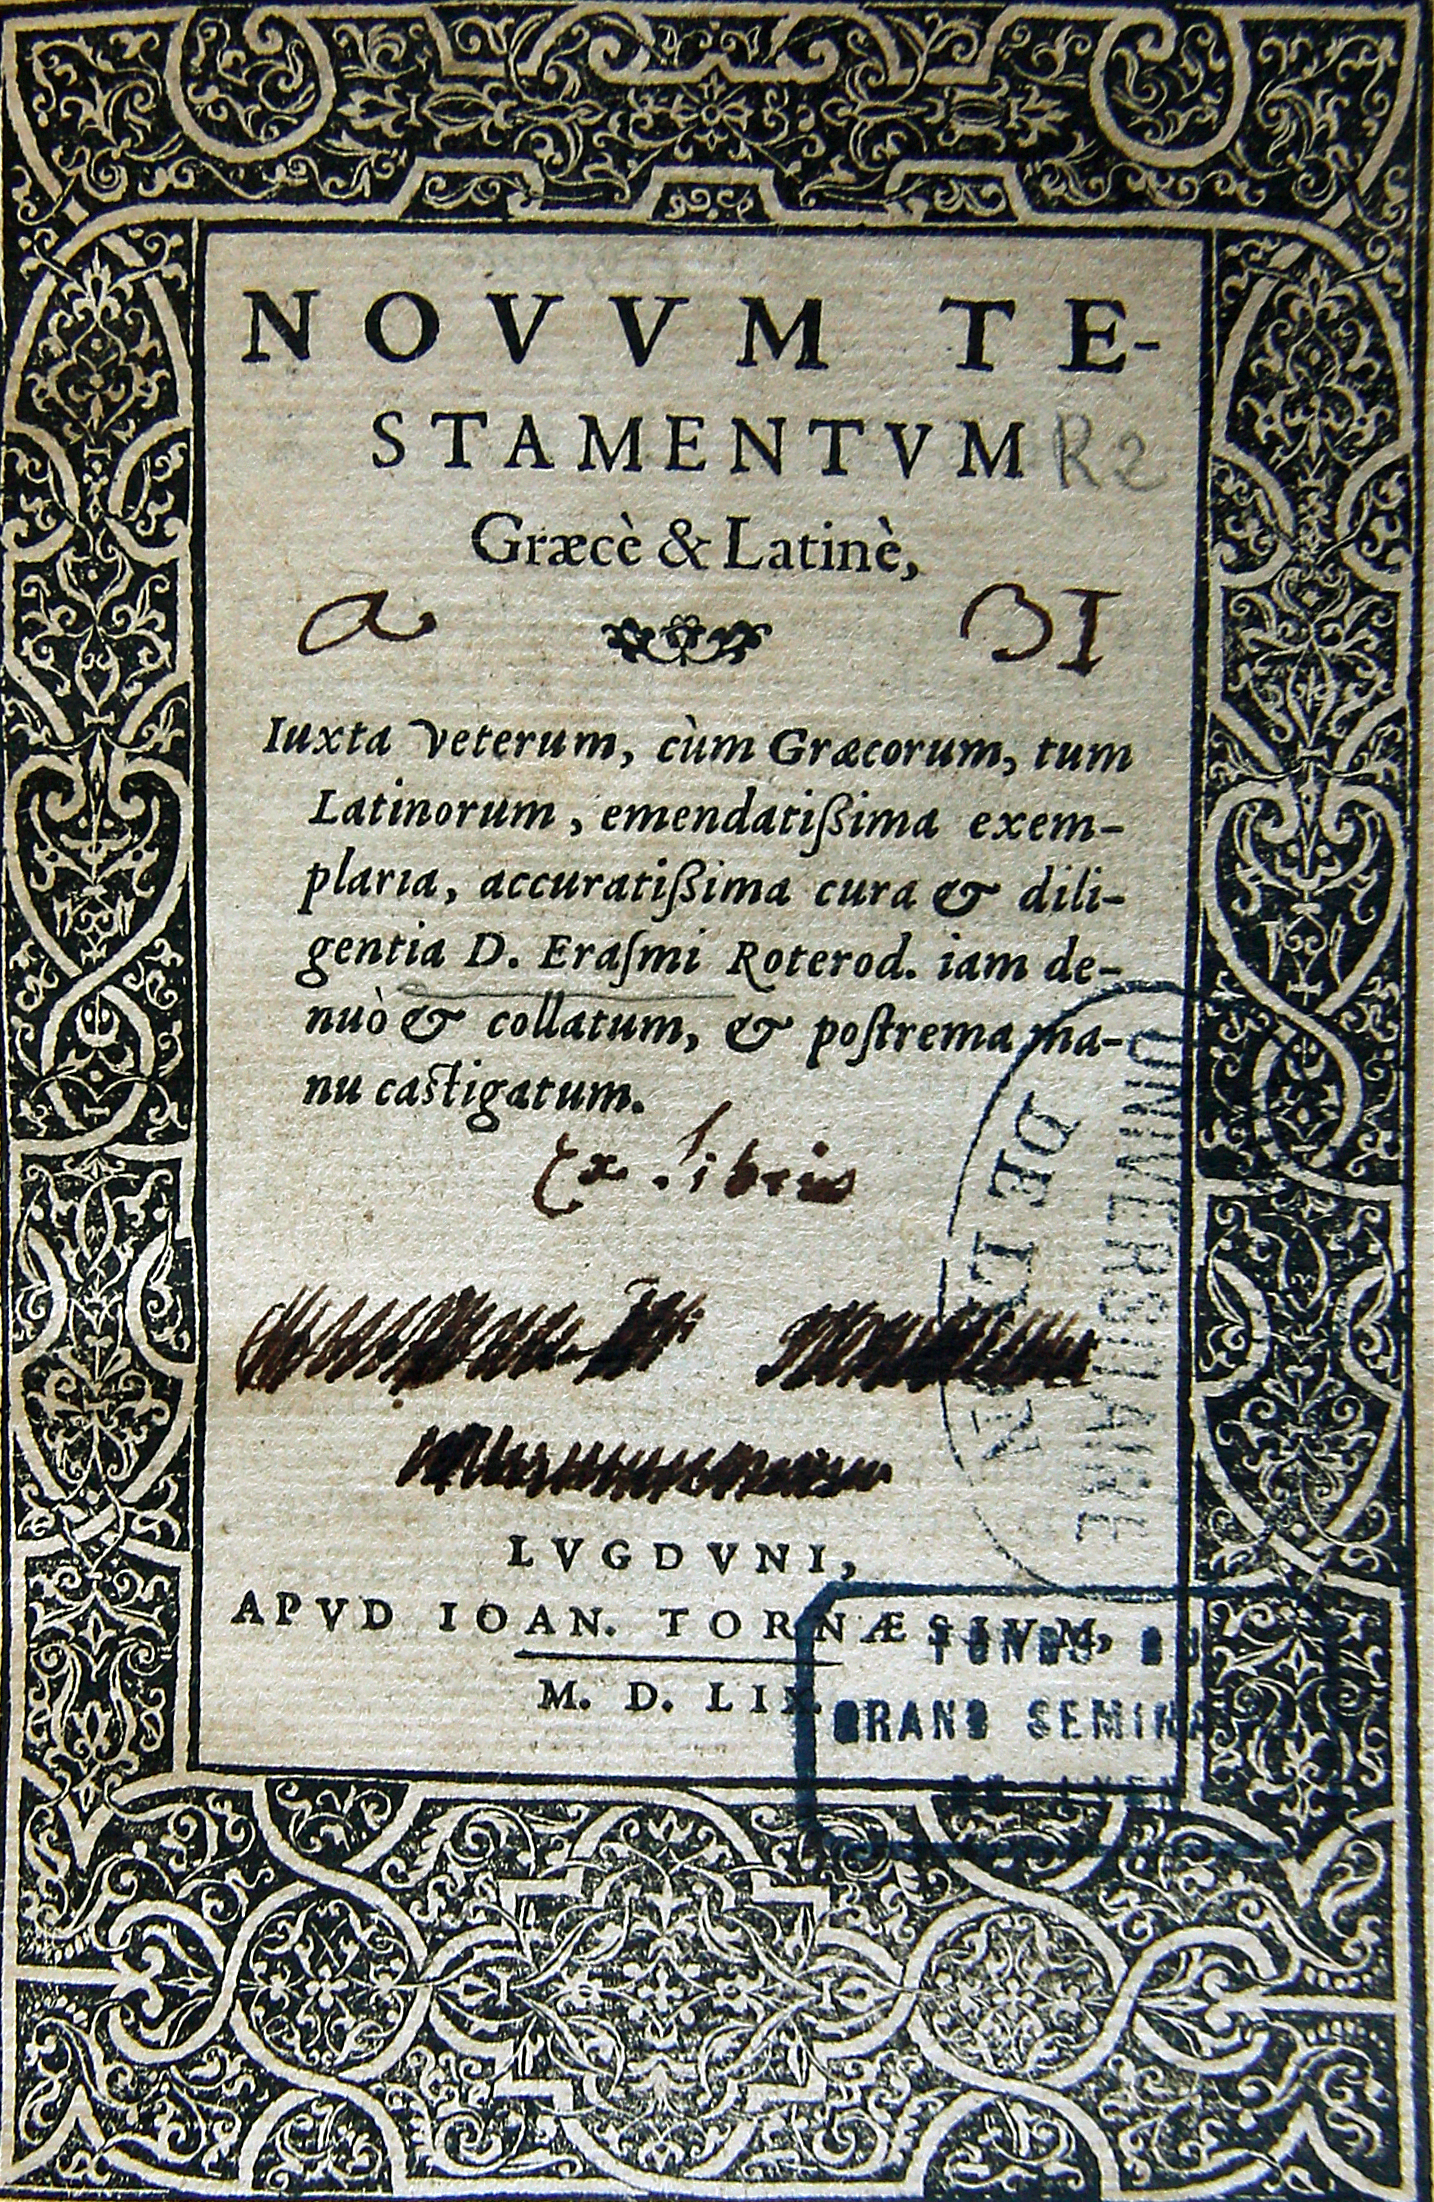 NOVVM TE-
STAMENTVM
R2
Græcè & Latinè,
a
31
Iuxta veterum, cùm Græcorum, tum
Latinorum, emendatißima exem-
plaria, accuratißima cura & dili-
gentia D. Eraſmi Roterod. iam de-
nuò & collatum, & poſtrema ma-
nu caſtigatum.
Ex libris
LVGDVNI,
APVD IOAN. TORNÆSIVM,
M. D. LIX
UNIVERSITAIRE
DE LYON
FONDS DU
GRAND SEMINA